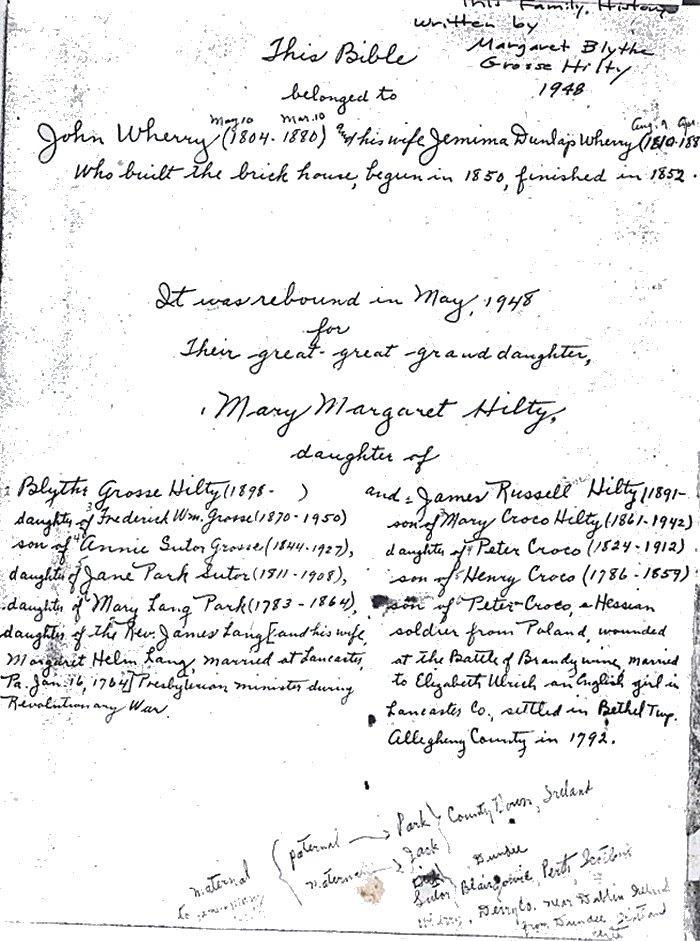 This Family History
written by
Margaret Blythe
Grosse Hilty
1948
This Bible
belonged to
May 10 Mar. 10 Aug. 9 Apr.
John Wherry (1804-1880) & his wife Jemima Dunlap Wherry (1810-188
Who built the brick house, begun in 1850, finished in 1852.
It was rebound in May, 1948
for
Their great-great-granddaughter,
Mary Margaret Hilty,
daughter of
Blythe Grosse Hilty (1898- )
daughter of Frederick Wm. Grosse (1870-1950)
son of Annie Sutor Grosse (1844-1927),
daughter of Jane Park Sutor (1811-1908),
daughter of Mary Lang Park (1783-1864),
daughter of the Rev. James Lang [and his wife,
Margaret Helm Lang, married at Lancaster,
Pa. Jan. 16, 1764] Presbyterian minister during
Revolutionary War.
and James Russell Hilty (1891-
son of Mary Croco Hilty (1861-1942)
daughter of Peter Croco (1824-1912)
son of Henry Croco (1786-1859)
son of Peter Croco, a Hessian
soldier from Poland, wounded
at the Battle of Brandywine, married
to Elizabeth Ulrich an English girl in
Lancaster Co., settled in Bethel Twp.
Allegheny County in 1792.
maternal
paternal → Park } County Down, Ireland
maternal → Jack
Dundee
Sutor Blairgowrie, Perth, Scotland
Derry Co. near Dublin Ireland
from Dundee Scotland